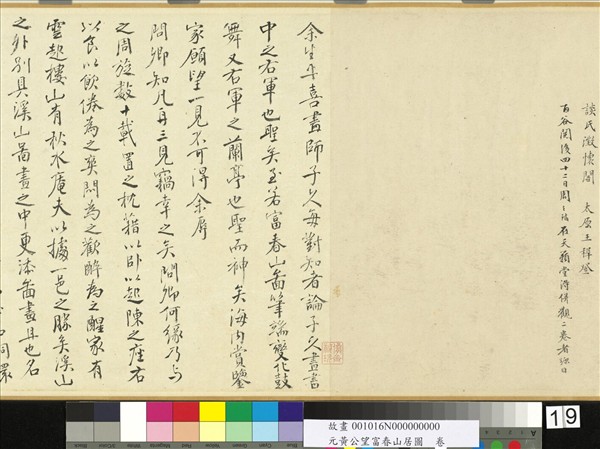 談氏澂懷閣 太原王穉登
百谷閱後四十二日周天球在天籟堂得併觀二卷者弥日
余生平喜畫師子久每對知者論子久畫書
中之右軍也聖矣至若富春山啚筆端變化鼓
舞又右軍之蘭亭也聖而神矣海內賞鑒
家願望一見不可得余辱
問卿知凡再三見竊幸之矣問卿何緣乃与
之周旋數十載置之枕藉以卧以起陳之座右
以食以飲倦為之爽悶為之歡醉為之醒家有
雲起樓山有秋水庵夫以據一邑之勝矣溪山
之外別具溪山啚畫之中更添啚畫且也名
故畫 001016N000000000
元黃公望富春山居圖 卷
19